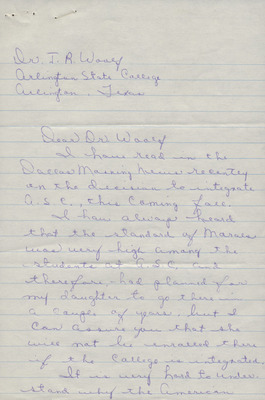 Dr. J. R. Woolf
Arlington State College
Arlington, Texas
Dear Dr. Woolf
I have read in the
Dallas Morning News recently
on the decision to integrate
A.S.C., this coming fall.
I have always heard
that the standard of Morals
was very high among the
students at A.S.C. and
therefore had planned for
my daughter to go there in
a couple of years but I
can assure you that she
will not be enrolled there
if the College is integrated.
It is very hard to under-
stand why the American